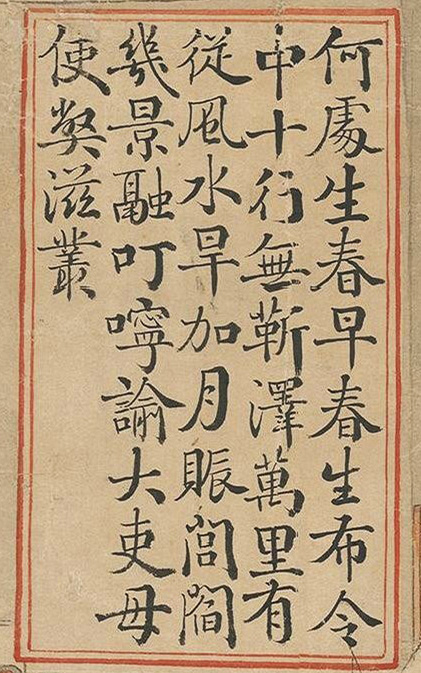 何處生春早春生布令
中十行無蘄澤萬里有
從風水旱加月賑閭閻
幾景融叮嚀諭大吏毋
使弊滋叢